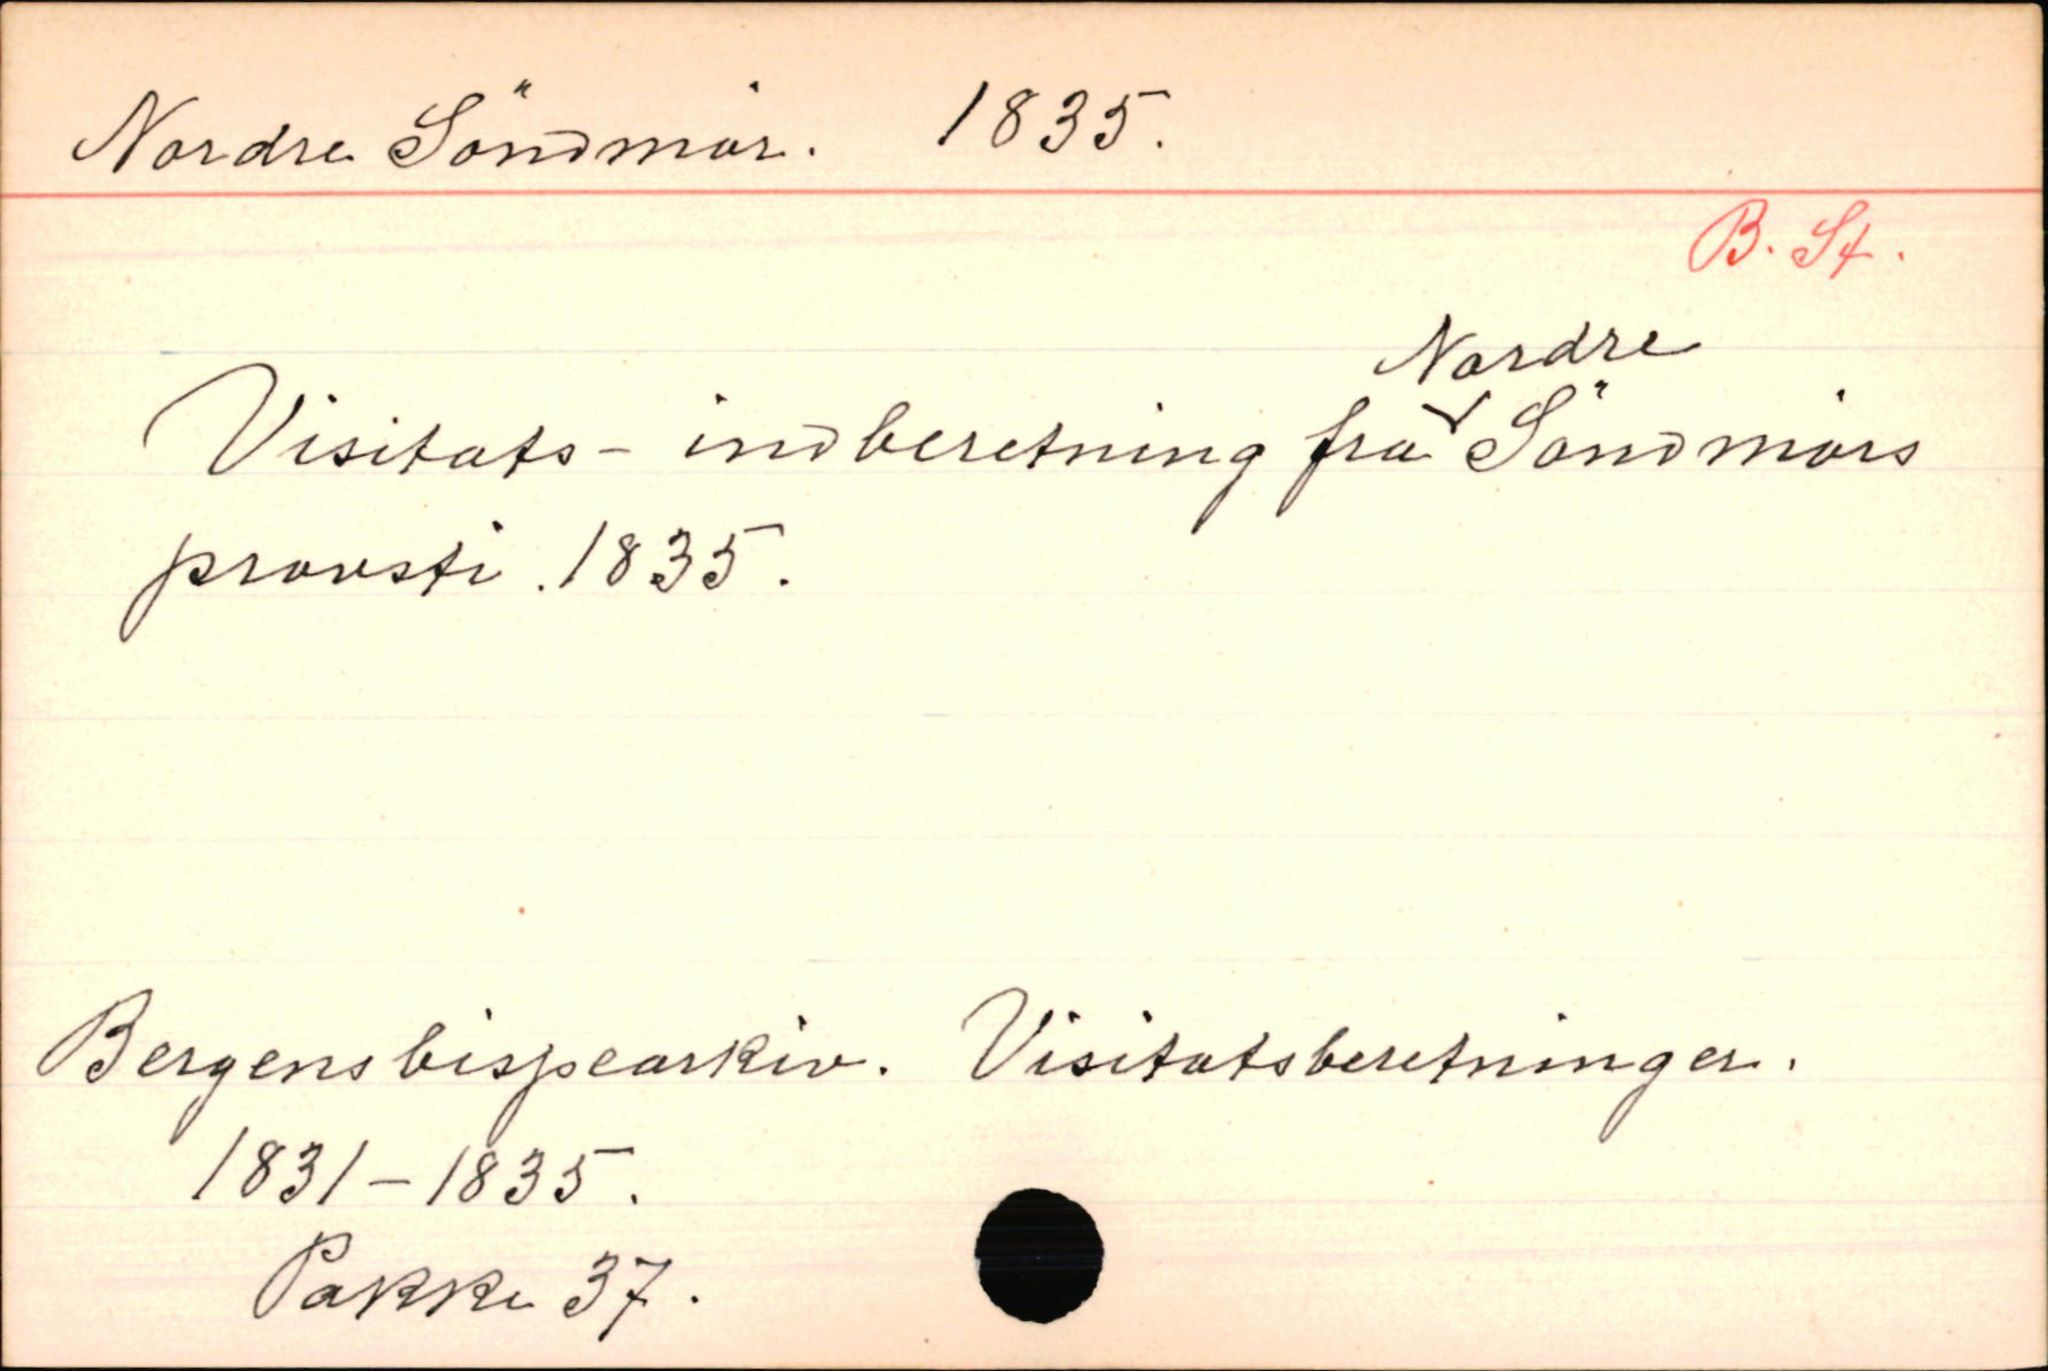 Nordre Söndmör. 1835.
B. St.
Nordre
Visitats-indberetning fra Söndmörs
provsti. 1835.
Bergens bispearkiv. Visitatsberetninger.
1831-1835.
Pakke 37.